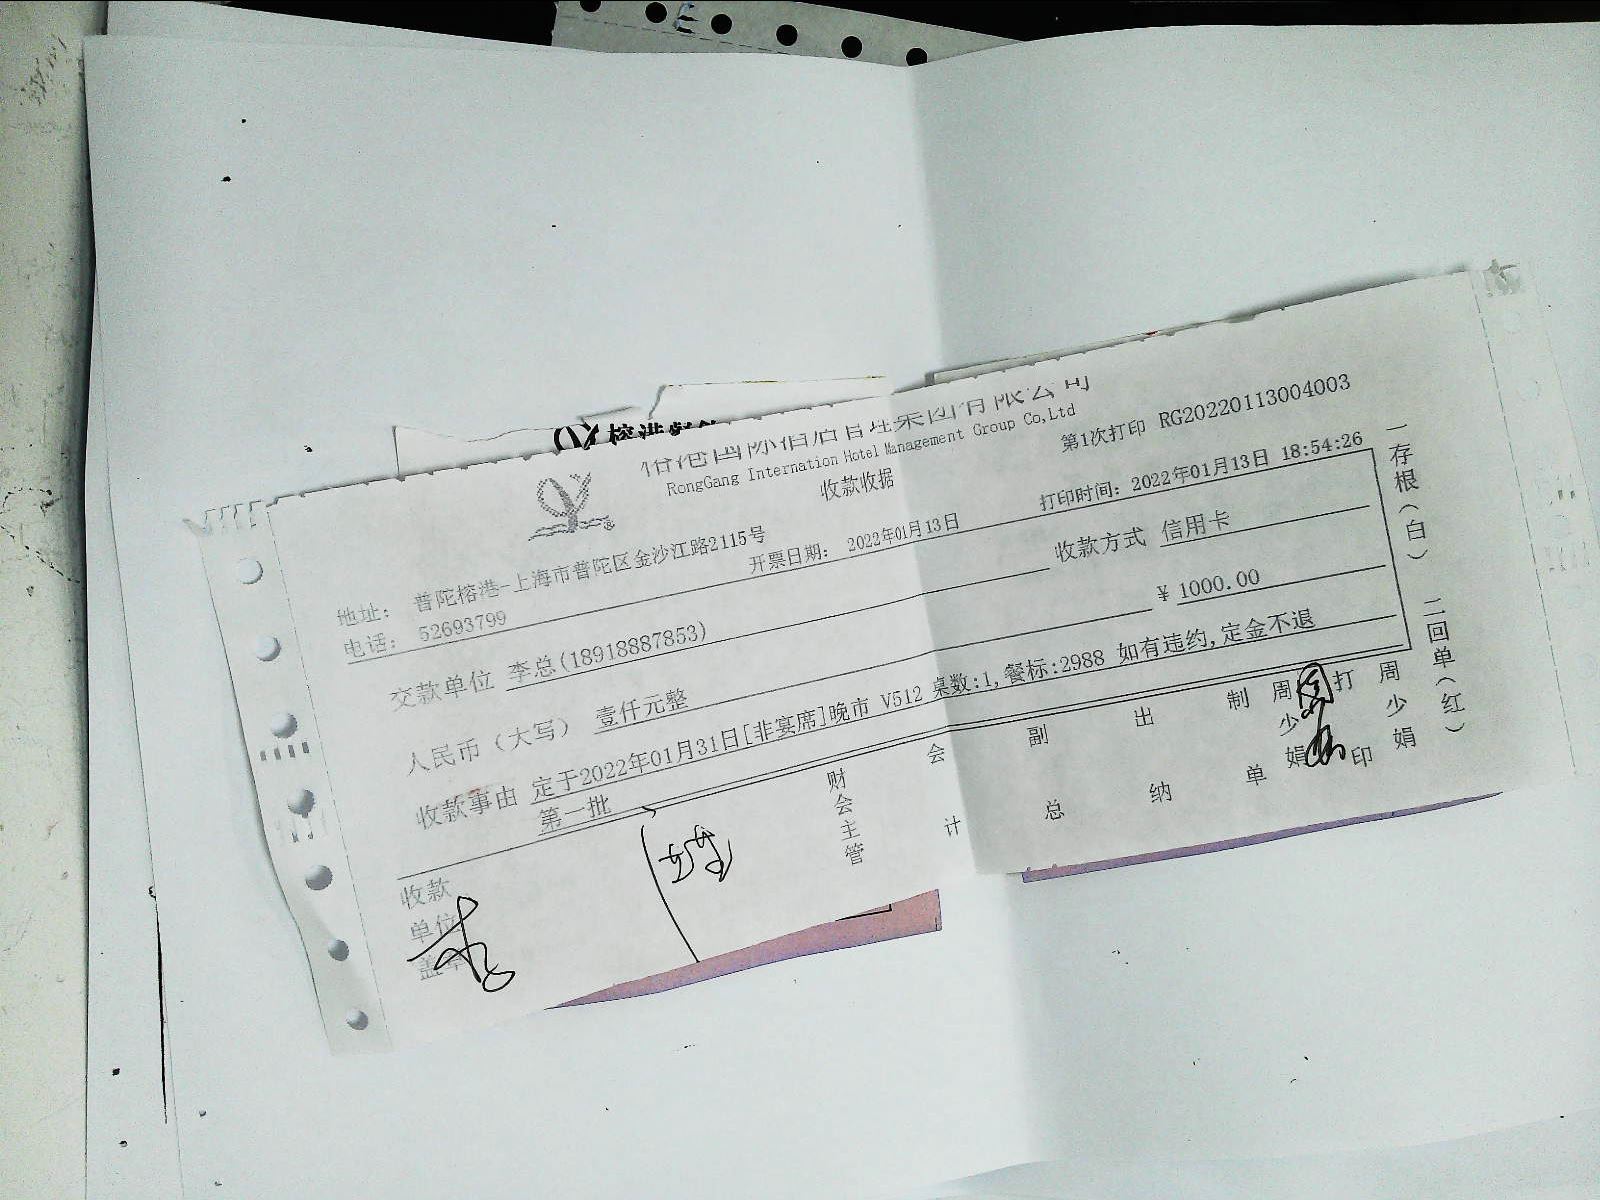 榕港国际酒店管理集团有限公司
RongGang Internation Hotel Management Group Co,Ltd
收款收据
第1次打印 RG20220113004003
地址： 普陀榕港-上海市普陀区金沙江路2115号
电话： 52693799
开票日期： 2022年01月13日
打印时间：2022年01月13日 18:54:26
交款单位 李总(18918887853)
收款方式 信用卡
人民币（大写） 壹仟元整
￥ 1000.00
收款事由 定于2022年01月31日[非宴席]晚市 V512 桌数:1,餐标:2988 如有违约,定金不退
第一批
收款单位盖章
财会主管
会计
副总
出纳
制单
周少娟
打印
周少娟
一存根（白） 二回单（红）